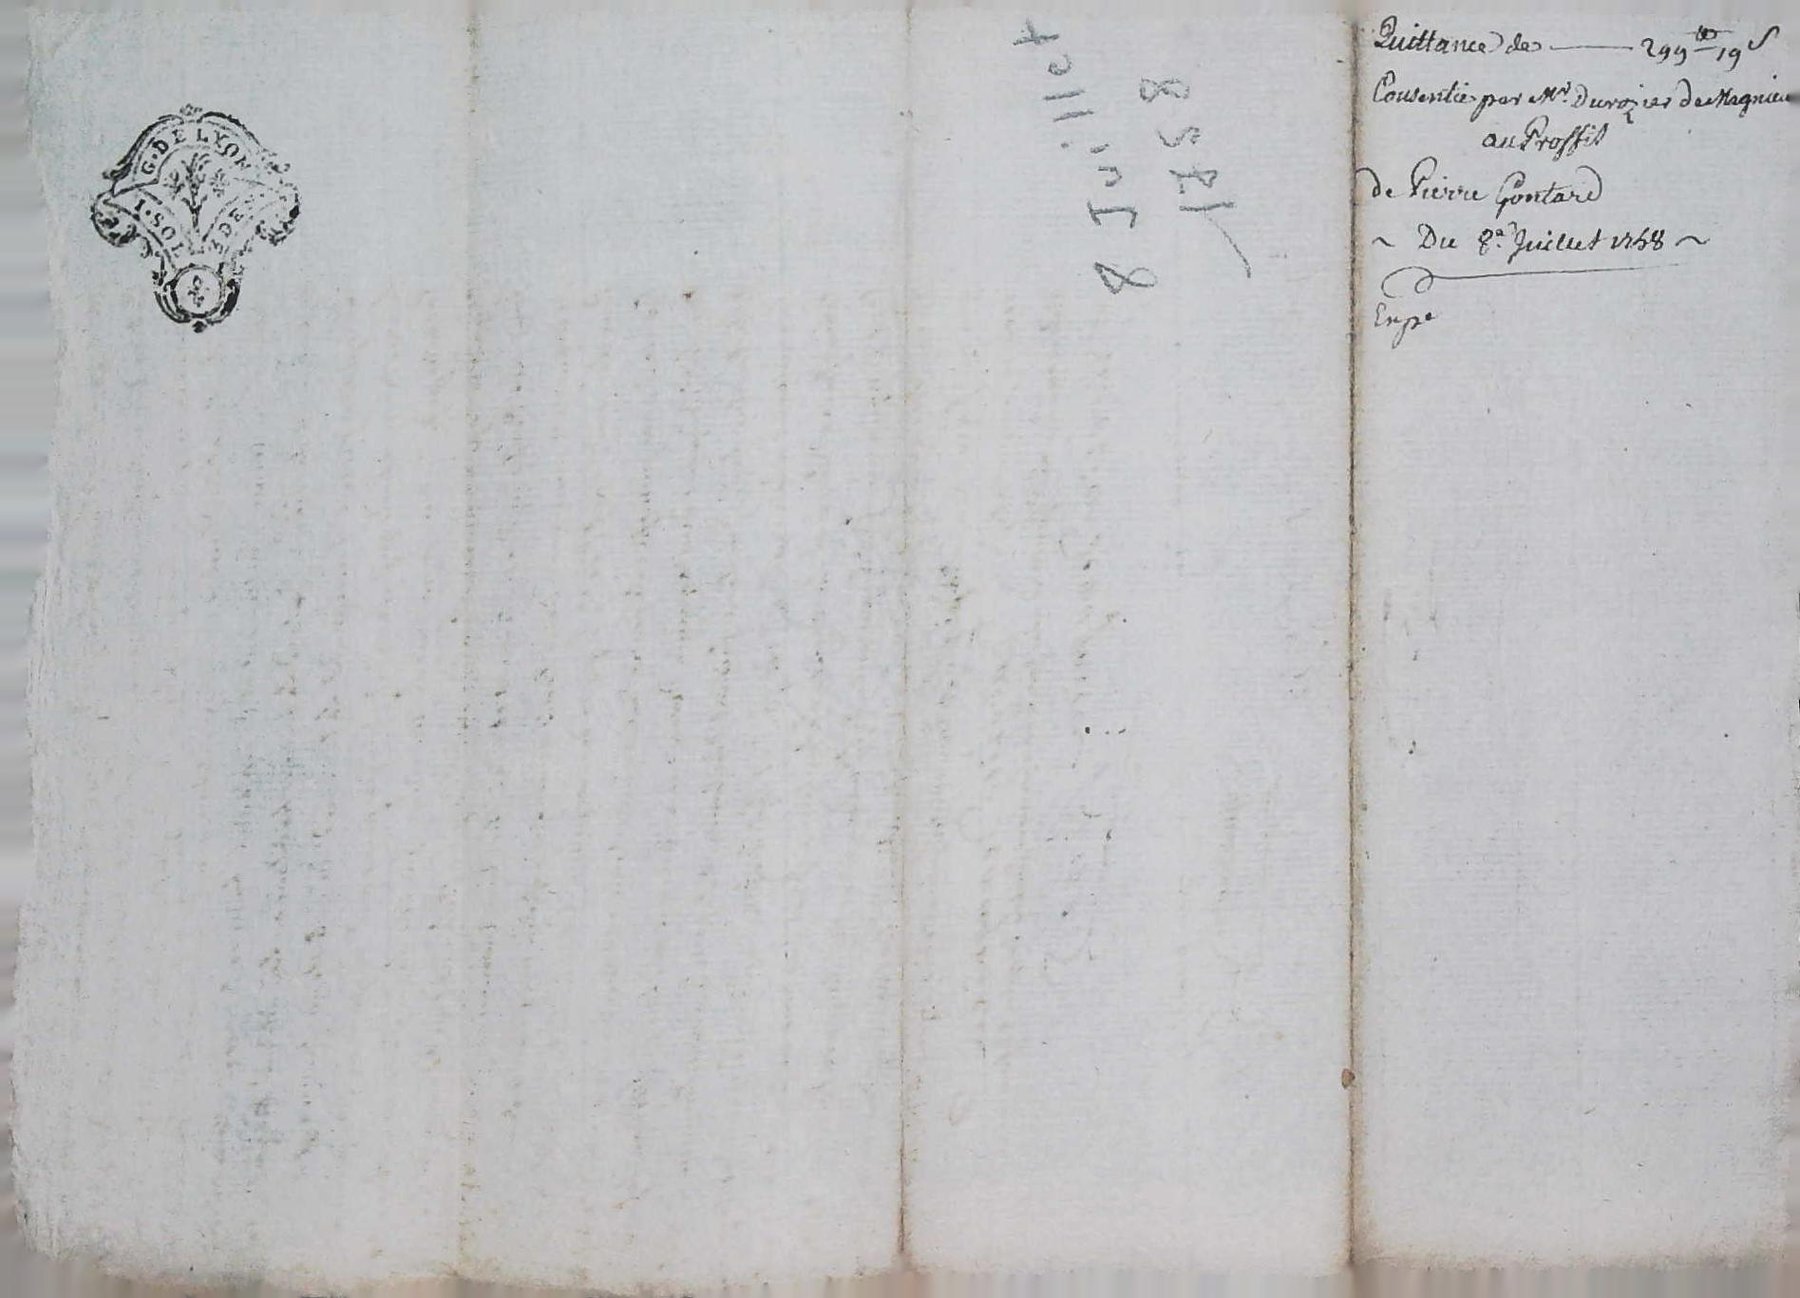 G. DE LYON
1. SOL 3 DE
8 Juillet
1758
Quittance de —— 299 ₶ 19 s
Consentie par Mr. Durozier de Magnieu
au Proffit
de Pierre Gontard
~ Du 8e. Juillet 1758 ~
Expe